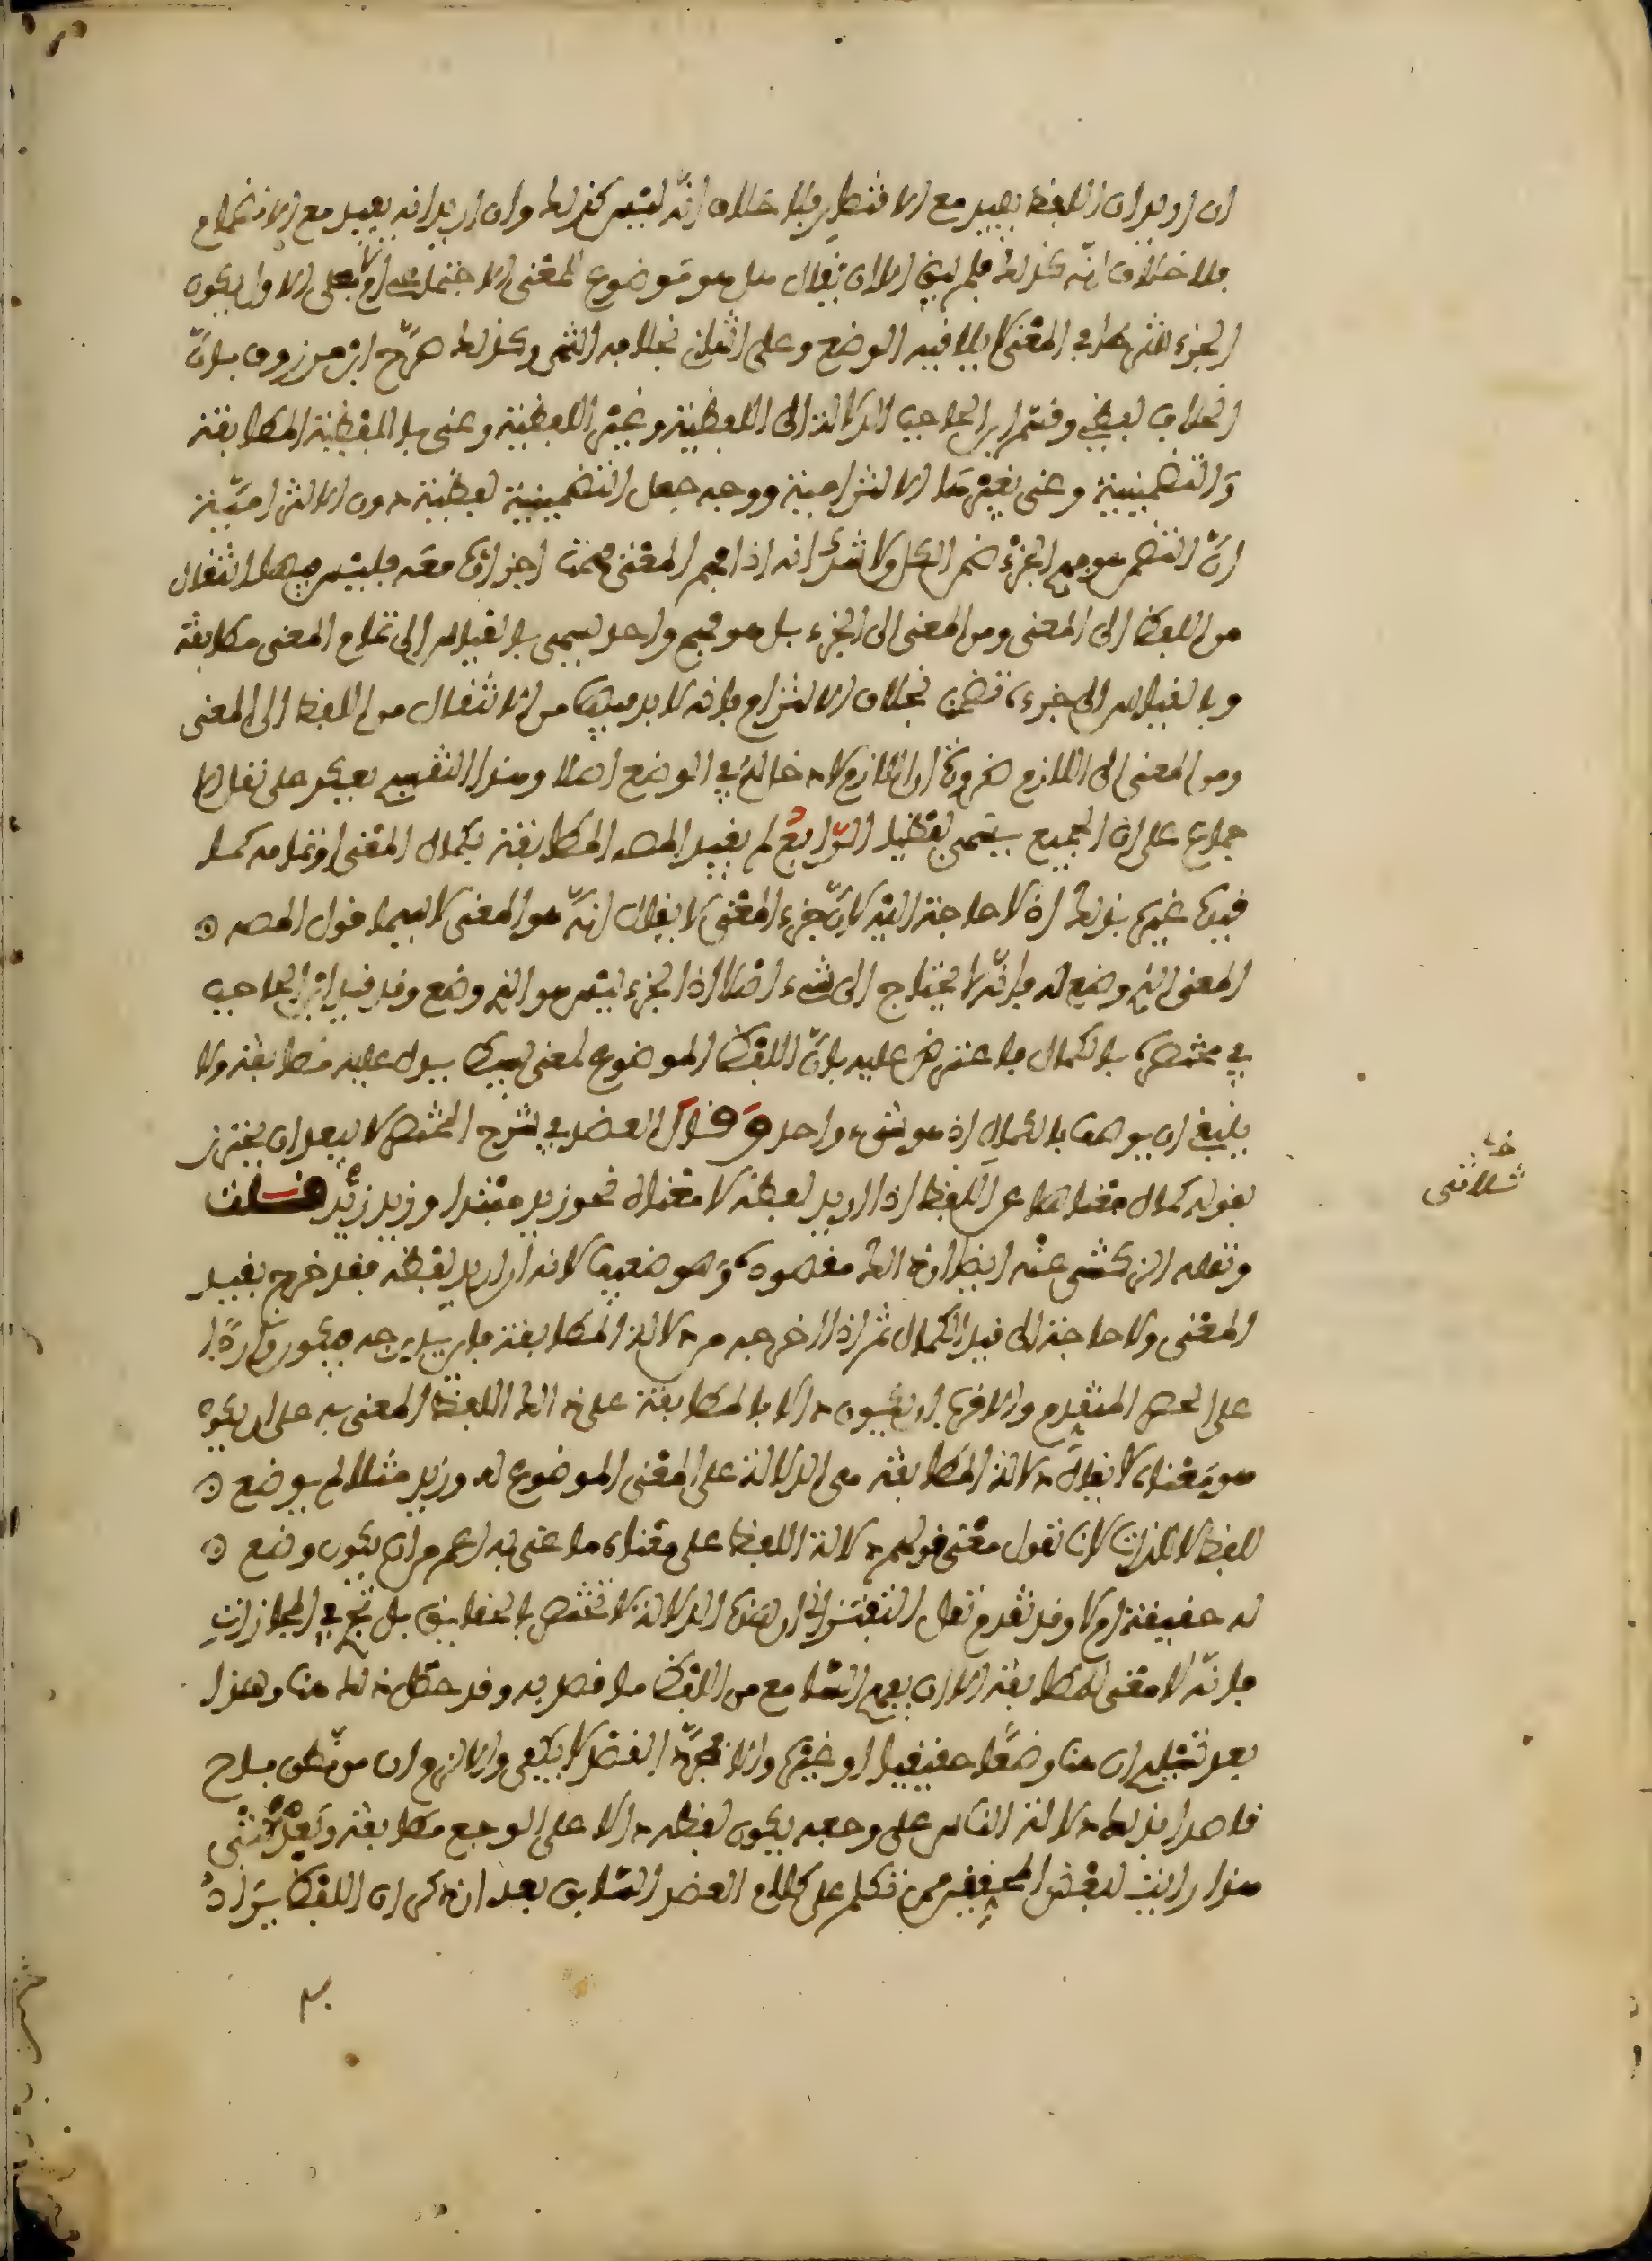 ان اريد ان اللفظ يفيد مع الافتطار فلا خلاف انه ليس كذلك وان اريد انه يفيد مع الانضمام
فلا خلاف انه كذلك فلم يبق الا ان يقال هل هو موضوع لمعنى الاجتماع ام لا فعلى الاول يكون
الجزء شرطا في المعنى لا يلاقيه الوضع وعلى الثاني بخلافه انتهى وكذلك صرح ابن مرزوق بان
الخلاف لفظي وقسم ابن الحاجب الدلالة الى اللفظية وغير اللفظية وعنى باللفظية المطابقة
والتضمينية وعنى بغيرهما الالتزامية ووجه جعل التضمينية لفظية دون الالتزامية
ان التضمن هو فهم الجزء ضمن الكل ولا شك انه اذا فهم المعنى فهمت اجزاؤه معه فليس فيهما انتقال
من اللفظ الى المعنى ومن المعنى الى الجزء بل هو فهم واحد يسمى بالقياس الى تمام المعنى مطابقة
وبالقياس الى جزءه تضمن بخلاف الالتزام فانه لا بد فيها من الانتقال من اللفظ الى المعنى
ومن المعنى الى اللازم ضرورة ان اللازم لا دخالة في الوضع اصلا وهذا التقسيم يعكر على نقل الا
جماع على ان الجميع يسمى لفظيا الرابع لم يقيد المص المطابقة بكمال المعنى او تمامه كما
قيده غيره بذلك اذ لا حاجة اليه لان جزء المعنى لا يقال انه هو المعنى لا سيما قول المص
المعنى الذي وضع له فانه لا يحتاج الى شيء اصلا اذ الجزء ليس هو الذي وضع وقد قيد ابن الحاجب
في مختصره بالكمال فاعترض عليه بان اللفظ الموضوع لمعنى بسيط يدل عليه مطابقة ولا
ينبغي ان يوصف بالكمال اذ هو شيء واحد وقال العضد في شرح المختصر لا يبعد ان يحترز
بقوله كمال معناها عن اللفظ اذا اريد لفظه لا معناه نحو زيد مبتدا وزيد زيد قلت
ونقله الزركشي عنه ايضا ان ذلك مقصوده وهو ضعيف لانه ان اريد لفظه فقد خرج بقيد
المعنى ولا حاجة الى قيد الكمال ثم اذا اخرجه من دلالة المطابقة فاين يدرجه فيكون واردا
على الحصر المتقدم والاقرب ان يكون دالا بالمطابقة على ذلك اللفظ المعنى به على ان يكون
هو معناه لا يقال دلالة المطابقة هي الدلالة على المعنى الموضوع له وزيد مثلا لم يوضع
للفظ لا للذات لانا نقول معنى قولهم دلالة اللفظ على معناه ما عنى به اعم من ان يكون وضع
له حقيقة ام لا وقد تقدم نقل التفتزاني ان هذه الدلالة لا تختص بالحقايق بل تجري في المجازات
فانه لا معنى للمطابقة الا ان يفهم السامع من اللفظ ما قصد به وقد حصل ذلك هنا وهذا
بعد تسليم ان هنا وضعا حقيقيا او غيره والا فمجرد القصد لا يكفي والا لزم ان من نطق بباح
قاصدا بذلك دلالة الناس على وجعه يكون لفظه دالا على الوجع مطابقة وبعد كتبي
هذا رايت لبعض المحققين ممن تكلم على كلام العضد السابق بعد ان ذكر ان اللفظ يراد
ثلاثي